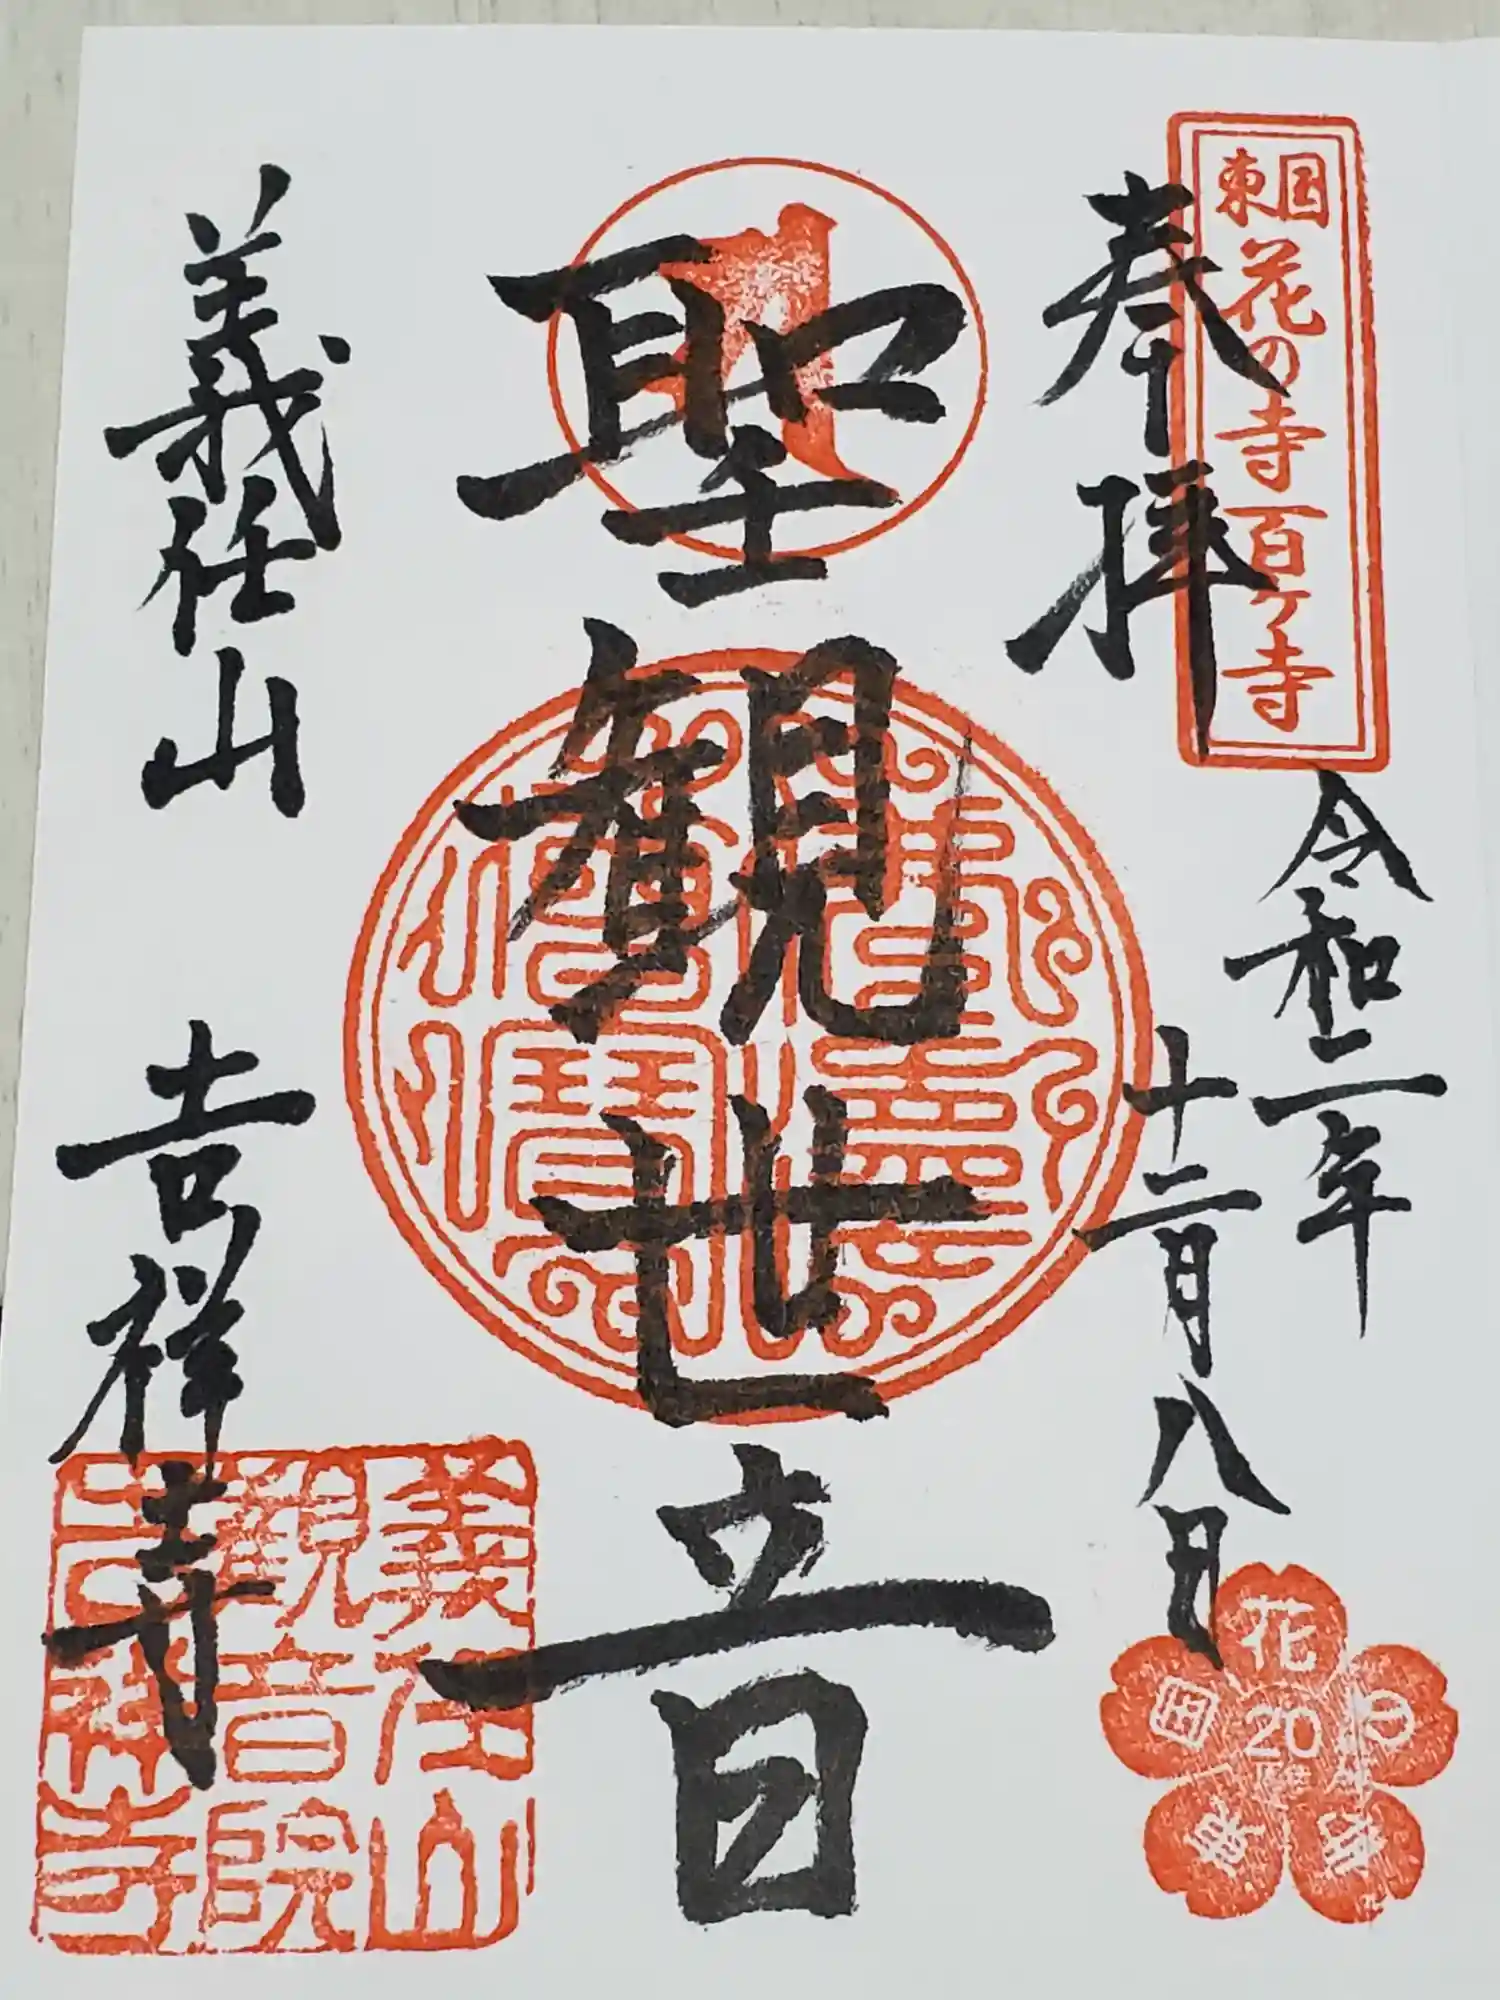 東国花の寺百ヶ寺
奉拝
令和二年
十二月八日
聖観世音
佛法僧寶
義任山
吉祥寺
義任山
観音院
吉祥寺
花の寺
東国
20
周年